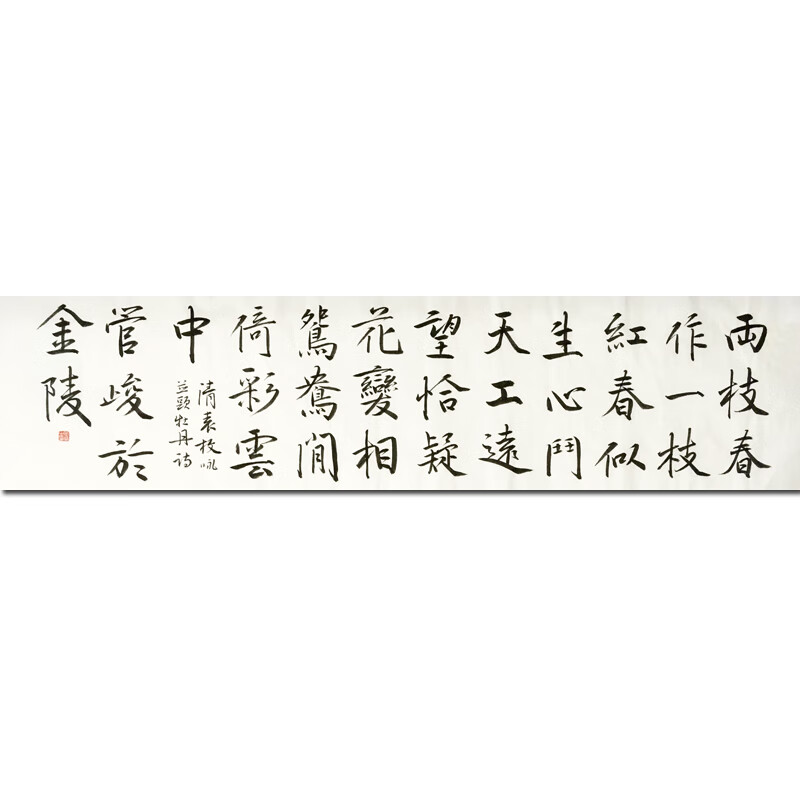 両枝春
作一枝
紅春似
生心鬥
天工遠
望恰疑
花變相
鴛鴦閒
倚彩雲
中
清袁枚咏
並頭牡丹詩
管峻於
金陵